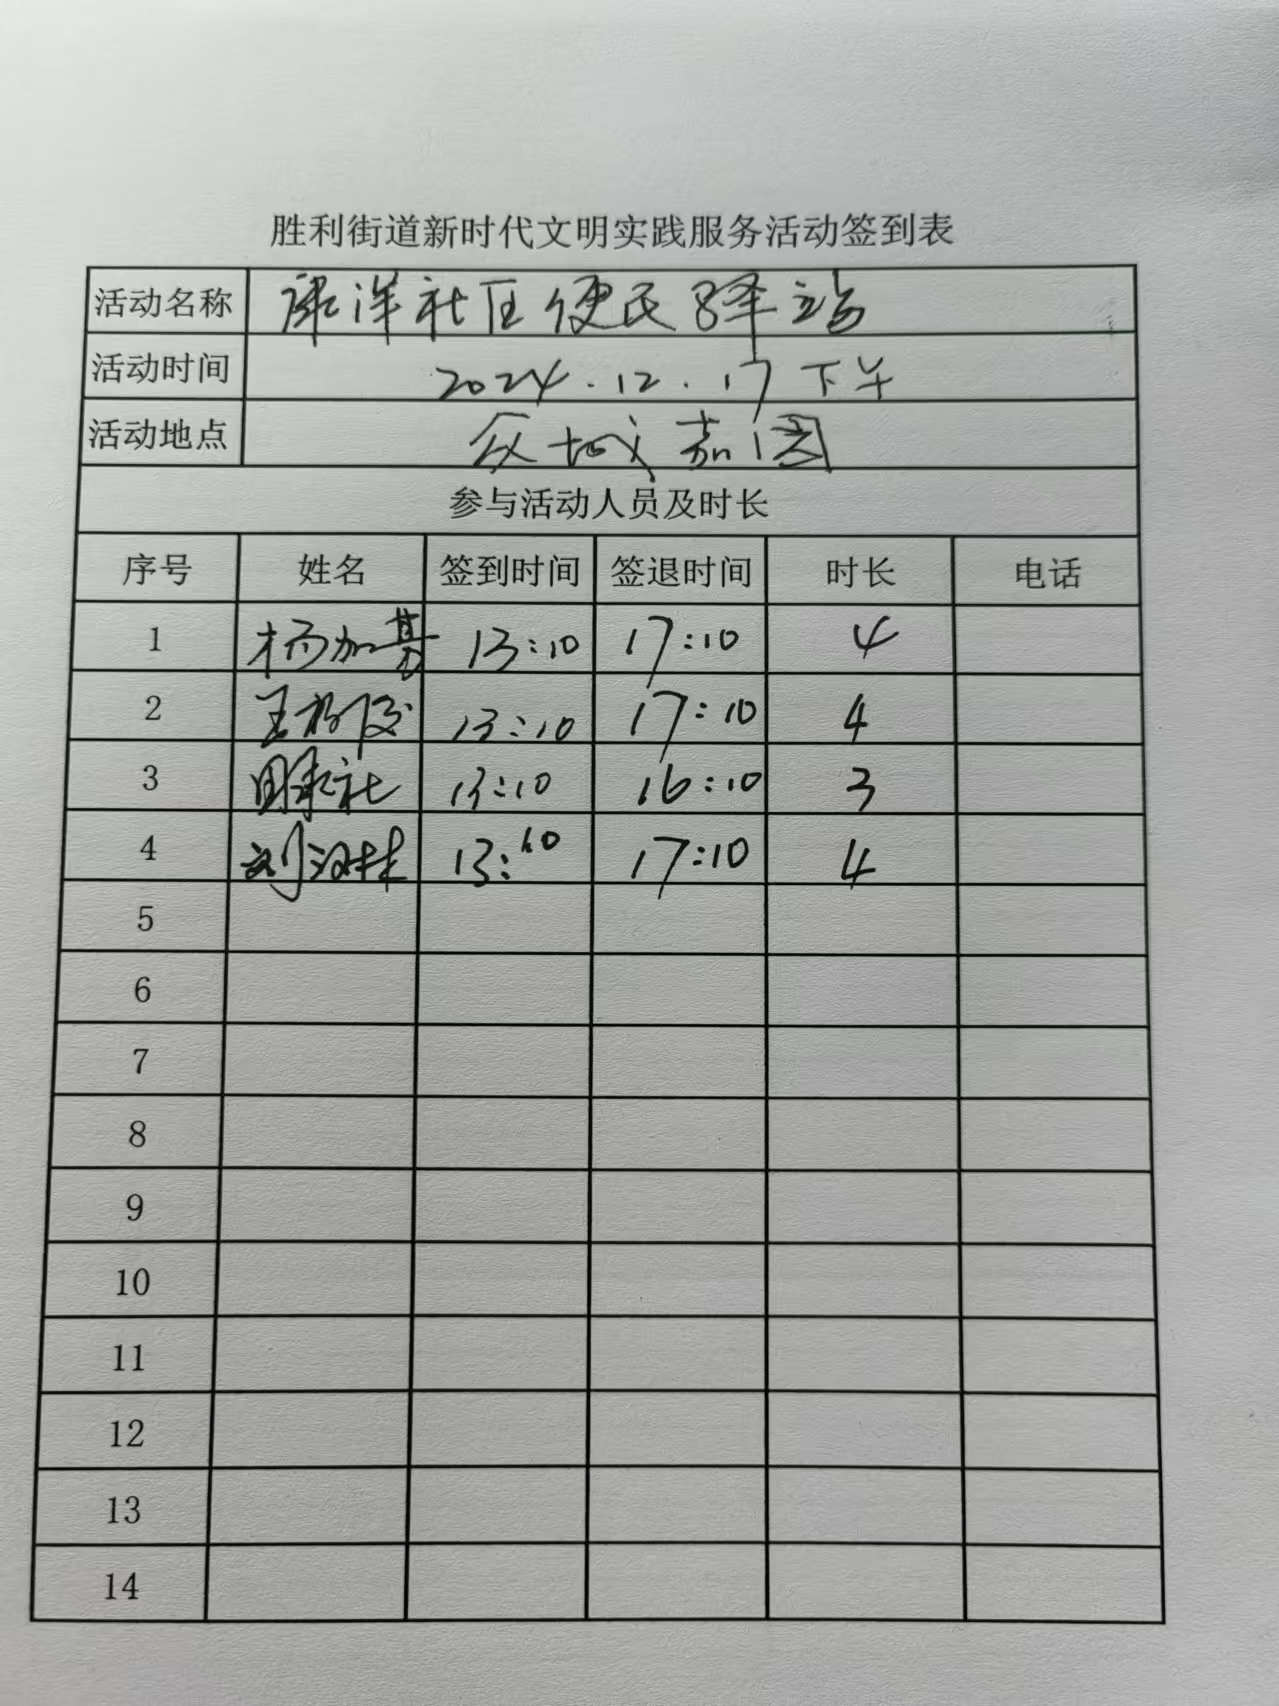 胜利街道新时代文明实践服务活动签到表
活动名称 康洋社区便民驿站
活动时间 2024.12.17 下午
活动地点 众城嘉园
参与活动人员及时长
序号 姓名 签到时间 签退时间 时长 电话
1 杨加 13:10 17:10 4
2 王 13:10 17:10 4
3 13:10 16:10 3
4 刘汉林 13:10 17:10 4
5
6
7
8
9
10
11
12
13
14